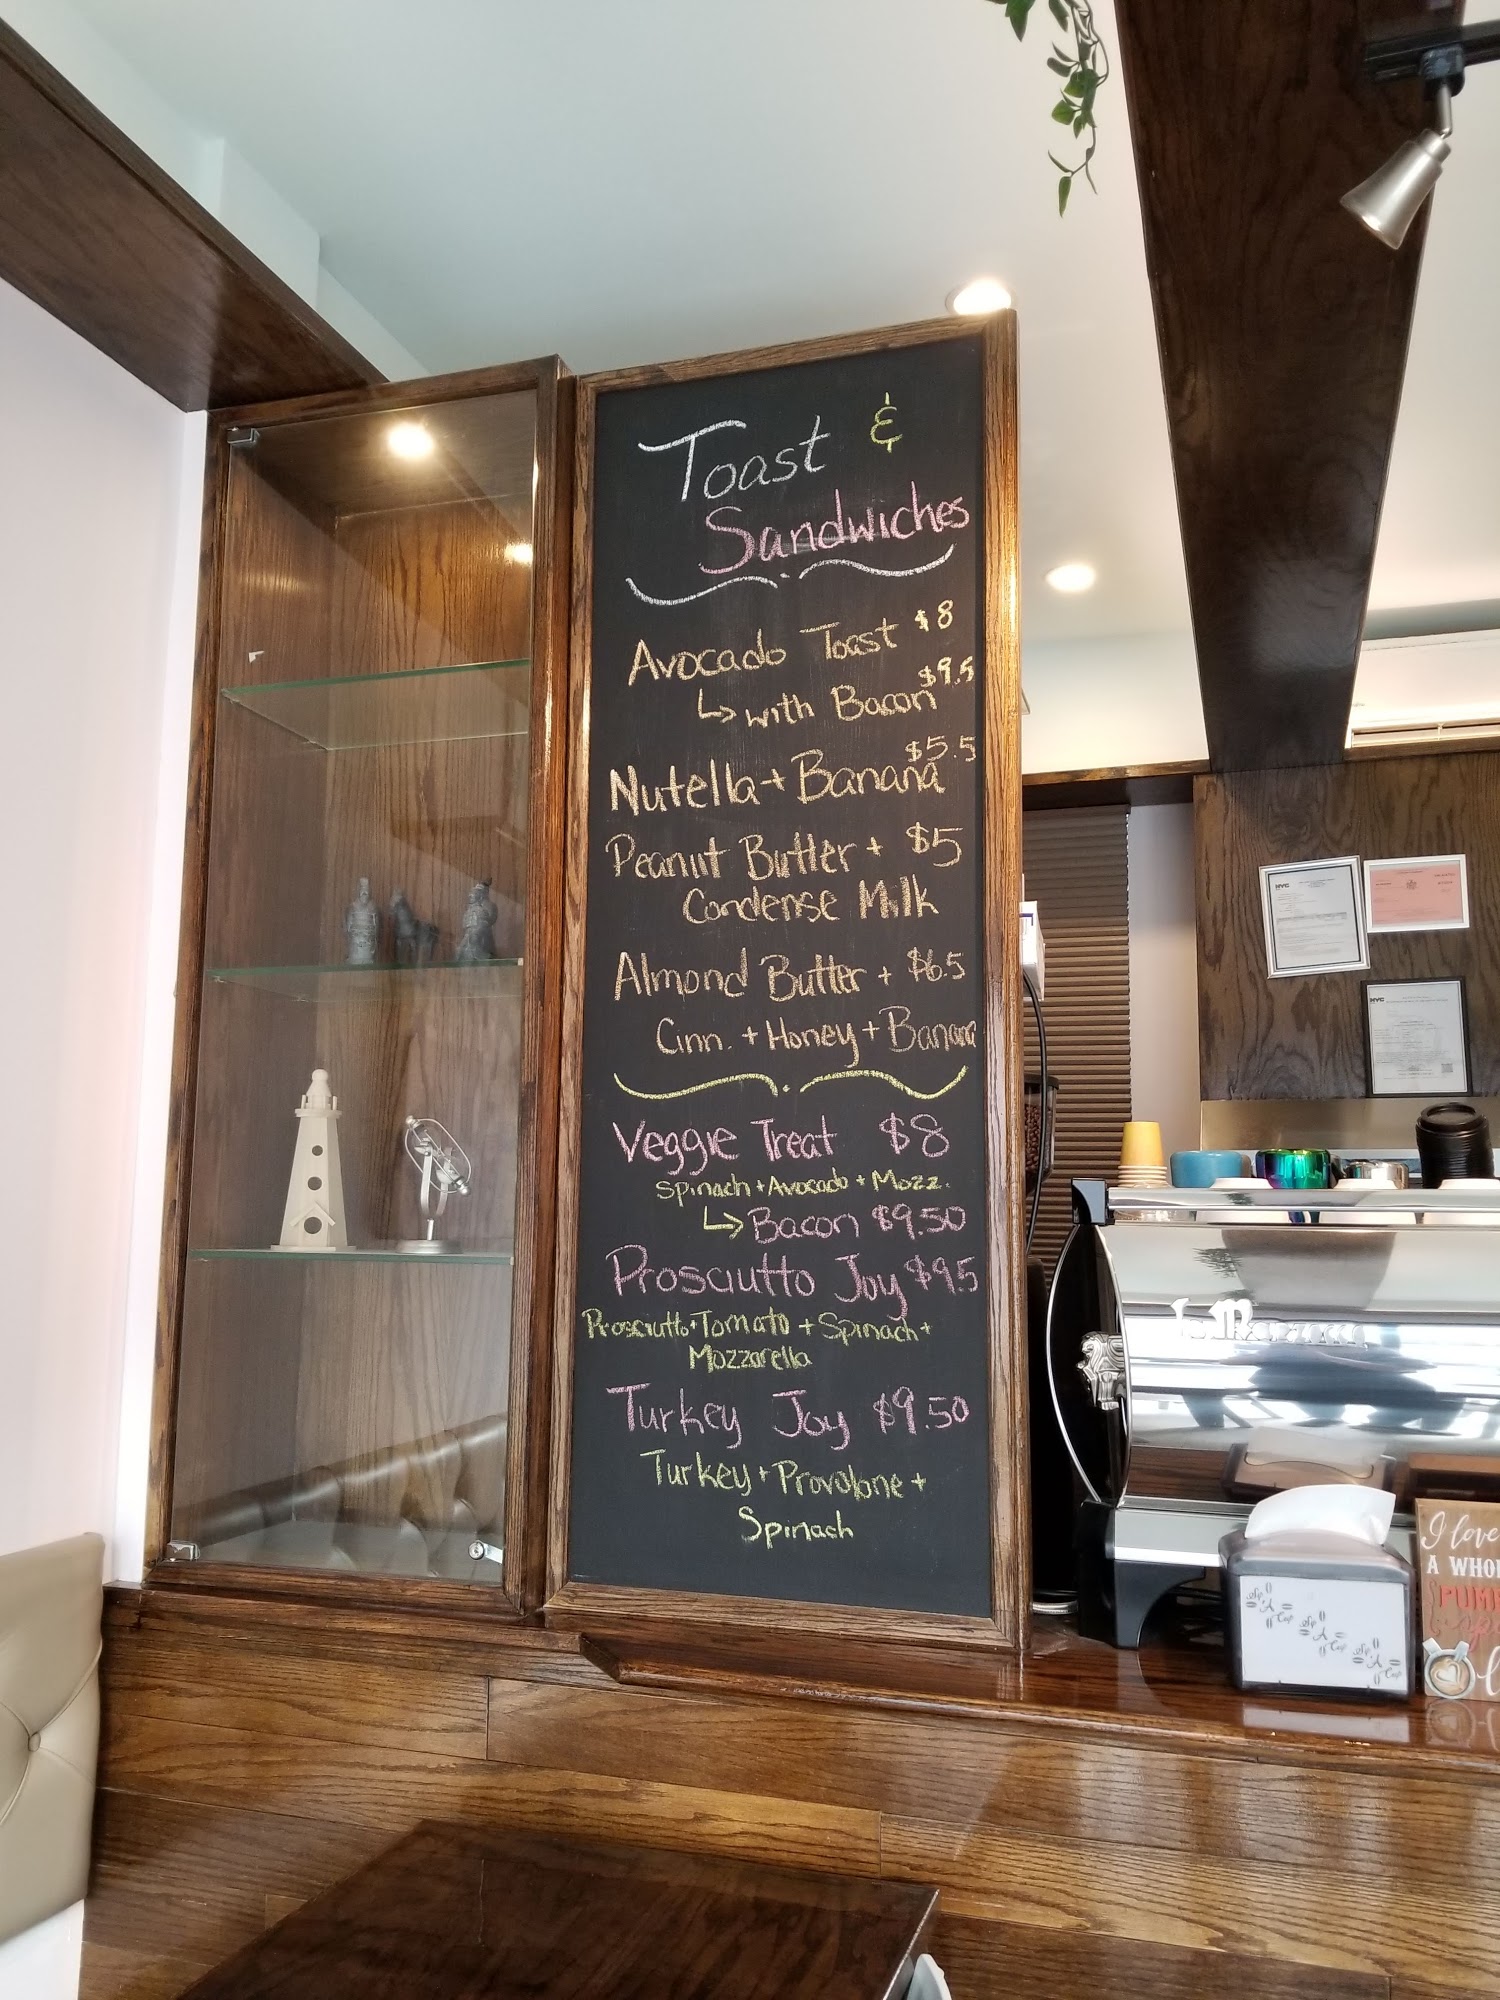 Toast &
Sandwiches
Avocado Toast $8
↳ with Bacon $9.5
Nutella + Banana $5.5
Peanut Butter + $5
Condense Milk
Almond Butter + $6.5
Cinn. + Honey + Banana
Veggie Treat $8
Spinach + Avocado + Mozz.
↳ Bacon $9.50
Prosciutto Joy $9.5
Prosciutto + Tomato + Spinach +
Mozzarella
Turkey Joy $9.50
Turkey + Provolone +
Spinach
NYC
NYC
La Marzocco
I love
A WHO
PUM